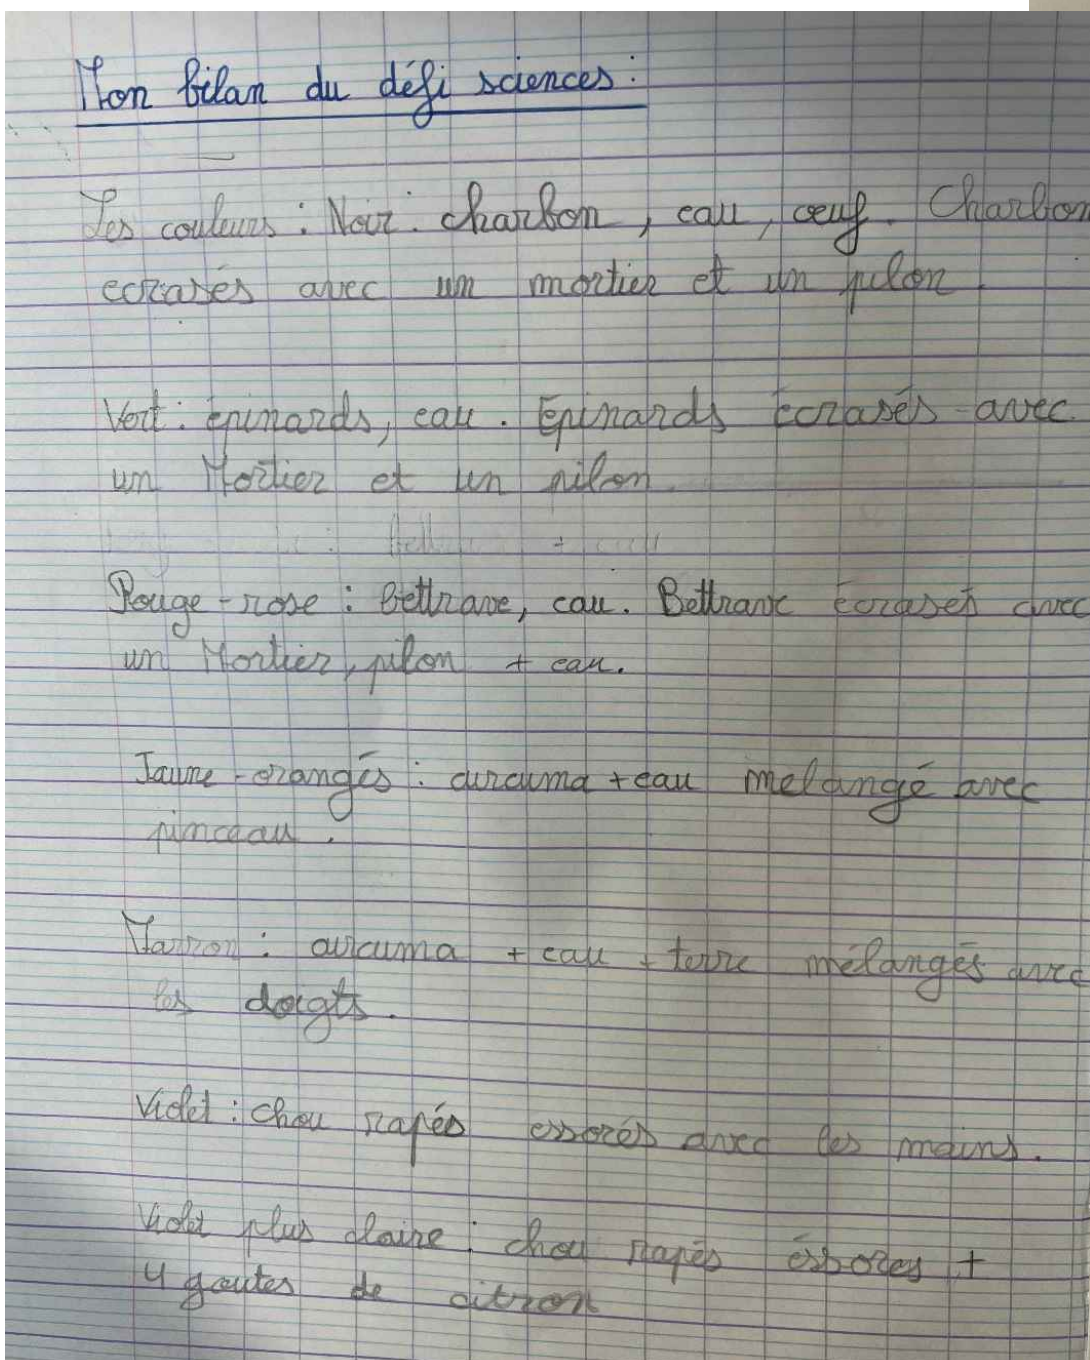 Mon bilan du défi sciences :
Les couleurs : Noir : charbon, eau, œuf. Charbon
ecrasés avec un mortier et un pilon.
Vert : épinards, eau. Epinards écrasés avec
un Mortier et un pilon.
Rouge-rose : Bettrave, eau. Bettrave écrasés avec
un Mortier, pilon + eau.
Jaune-orangés : curcuma + eau melangé avec
pinceau.
Marron : curcuma + eau + terre mélangés avec
les doigts.
Violet : chou rapés essorés avec les mains.
Violet plus claire : chou rapés éssores +
4 goutes de citron